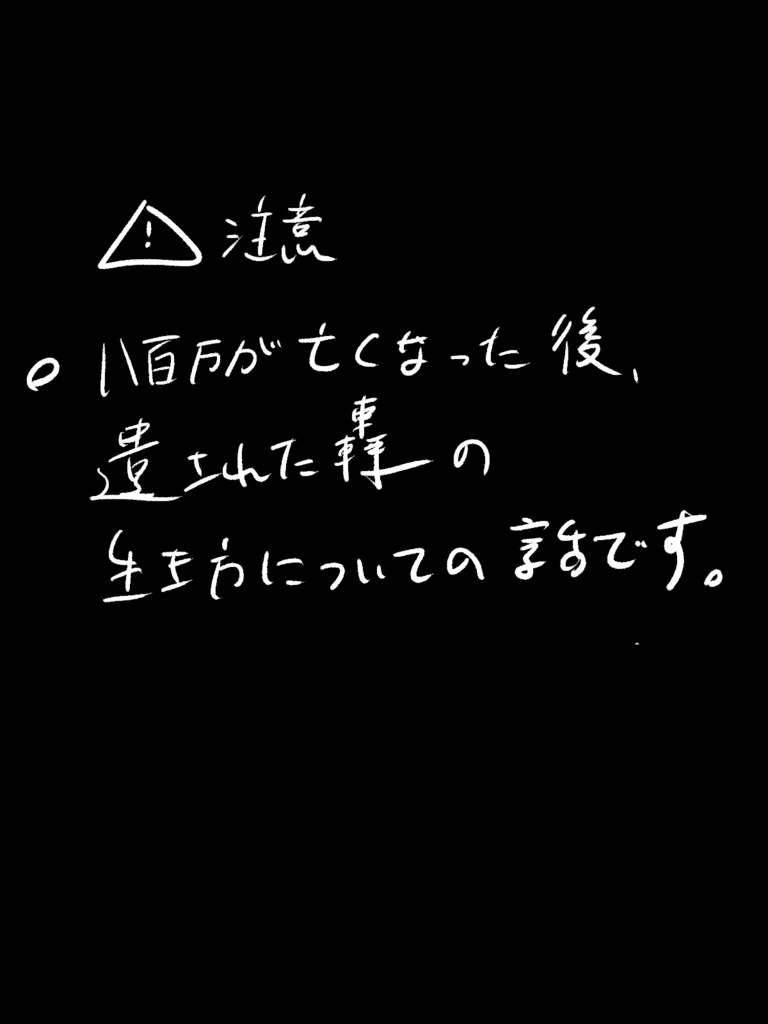 ⚠ 注意
○ 八百万が亡くなった後、
遺された轟の
生き方についての話です。